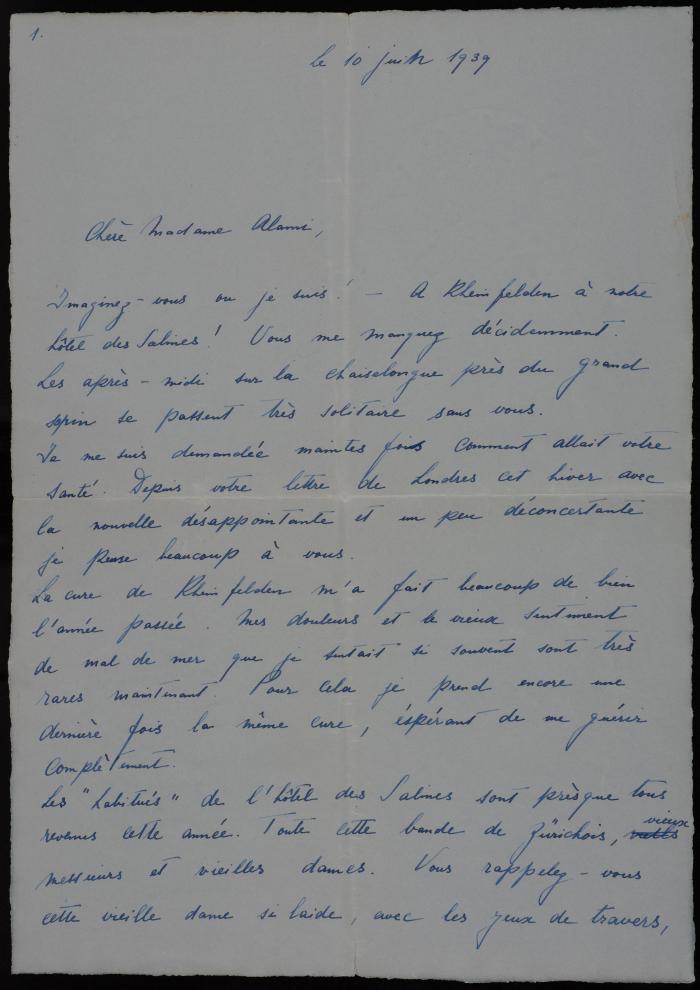 1.
le 10 juin 1939
Chère Madame Alami,
Imaginez-vous ou je suis! — A Rheinfelden à notre
hôtel des Salines! Vous me manquez décidemment.
Les après-midi sur la chaiselongue près du grand
sapin se passent très solitaire sans vous.
Je me suis demandée maintes fois comment allait votre
santé. Depuis votre lettre de Londres cet hiver avec
la nouvelle désappointante et un peu déconcertante
je pense beaucoup à vous.
La cure de Rheinfelden m'a fait beaucoup de bien
l'année passée. Mes douleurs et le vieux sentiment
de mal de mer que je sentait si souvent sont très
rares maintenant. Pour cela je prend encore une
dernière fois la même cure, éspérant de me guérir
complètement.
Les "habitués" de l'hôtel des Salines sont présque tous
revenus cette année. Toute cette bande de Zürichois, vieux
messieurs et vieilles dames. Vous rappelez-vous
cette vieille dame si laide, avec les yeux de travers,